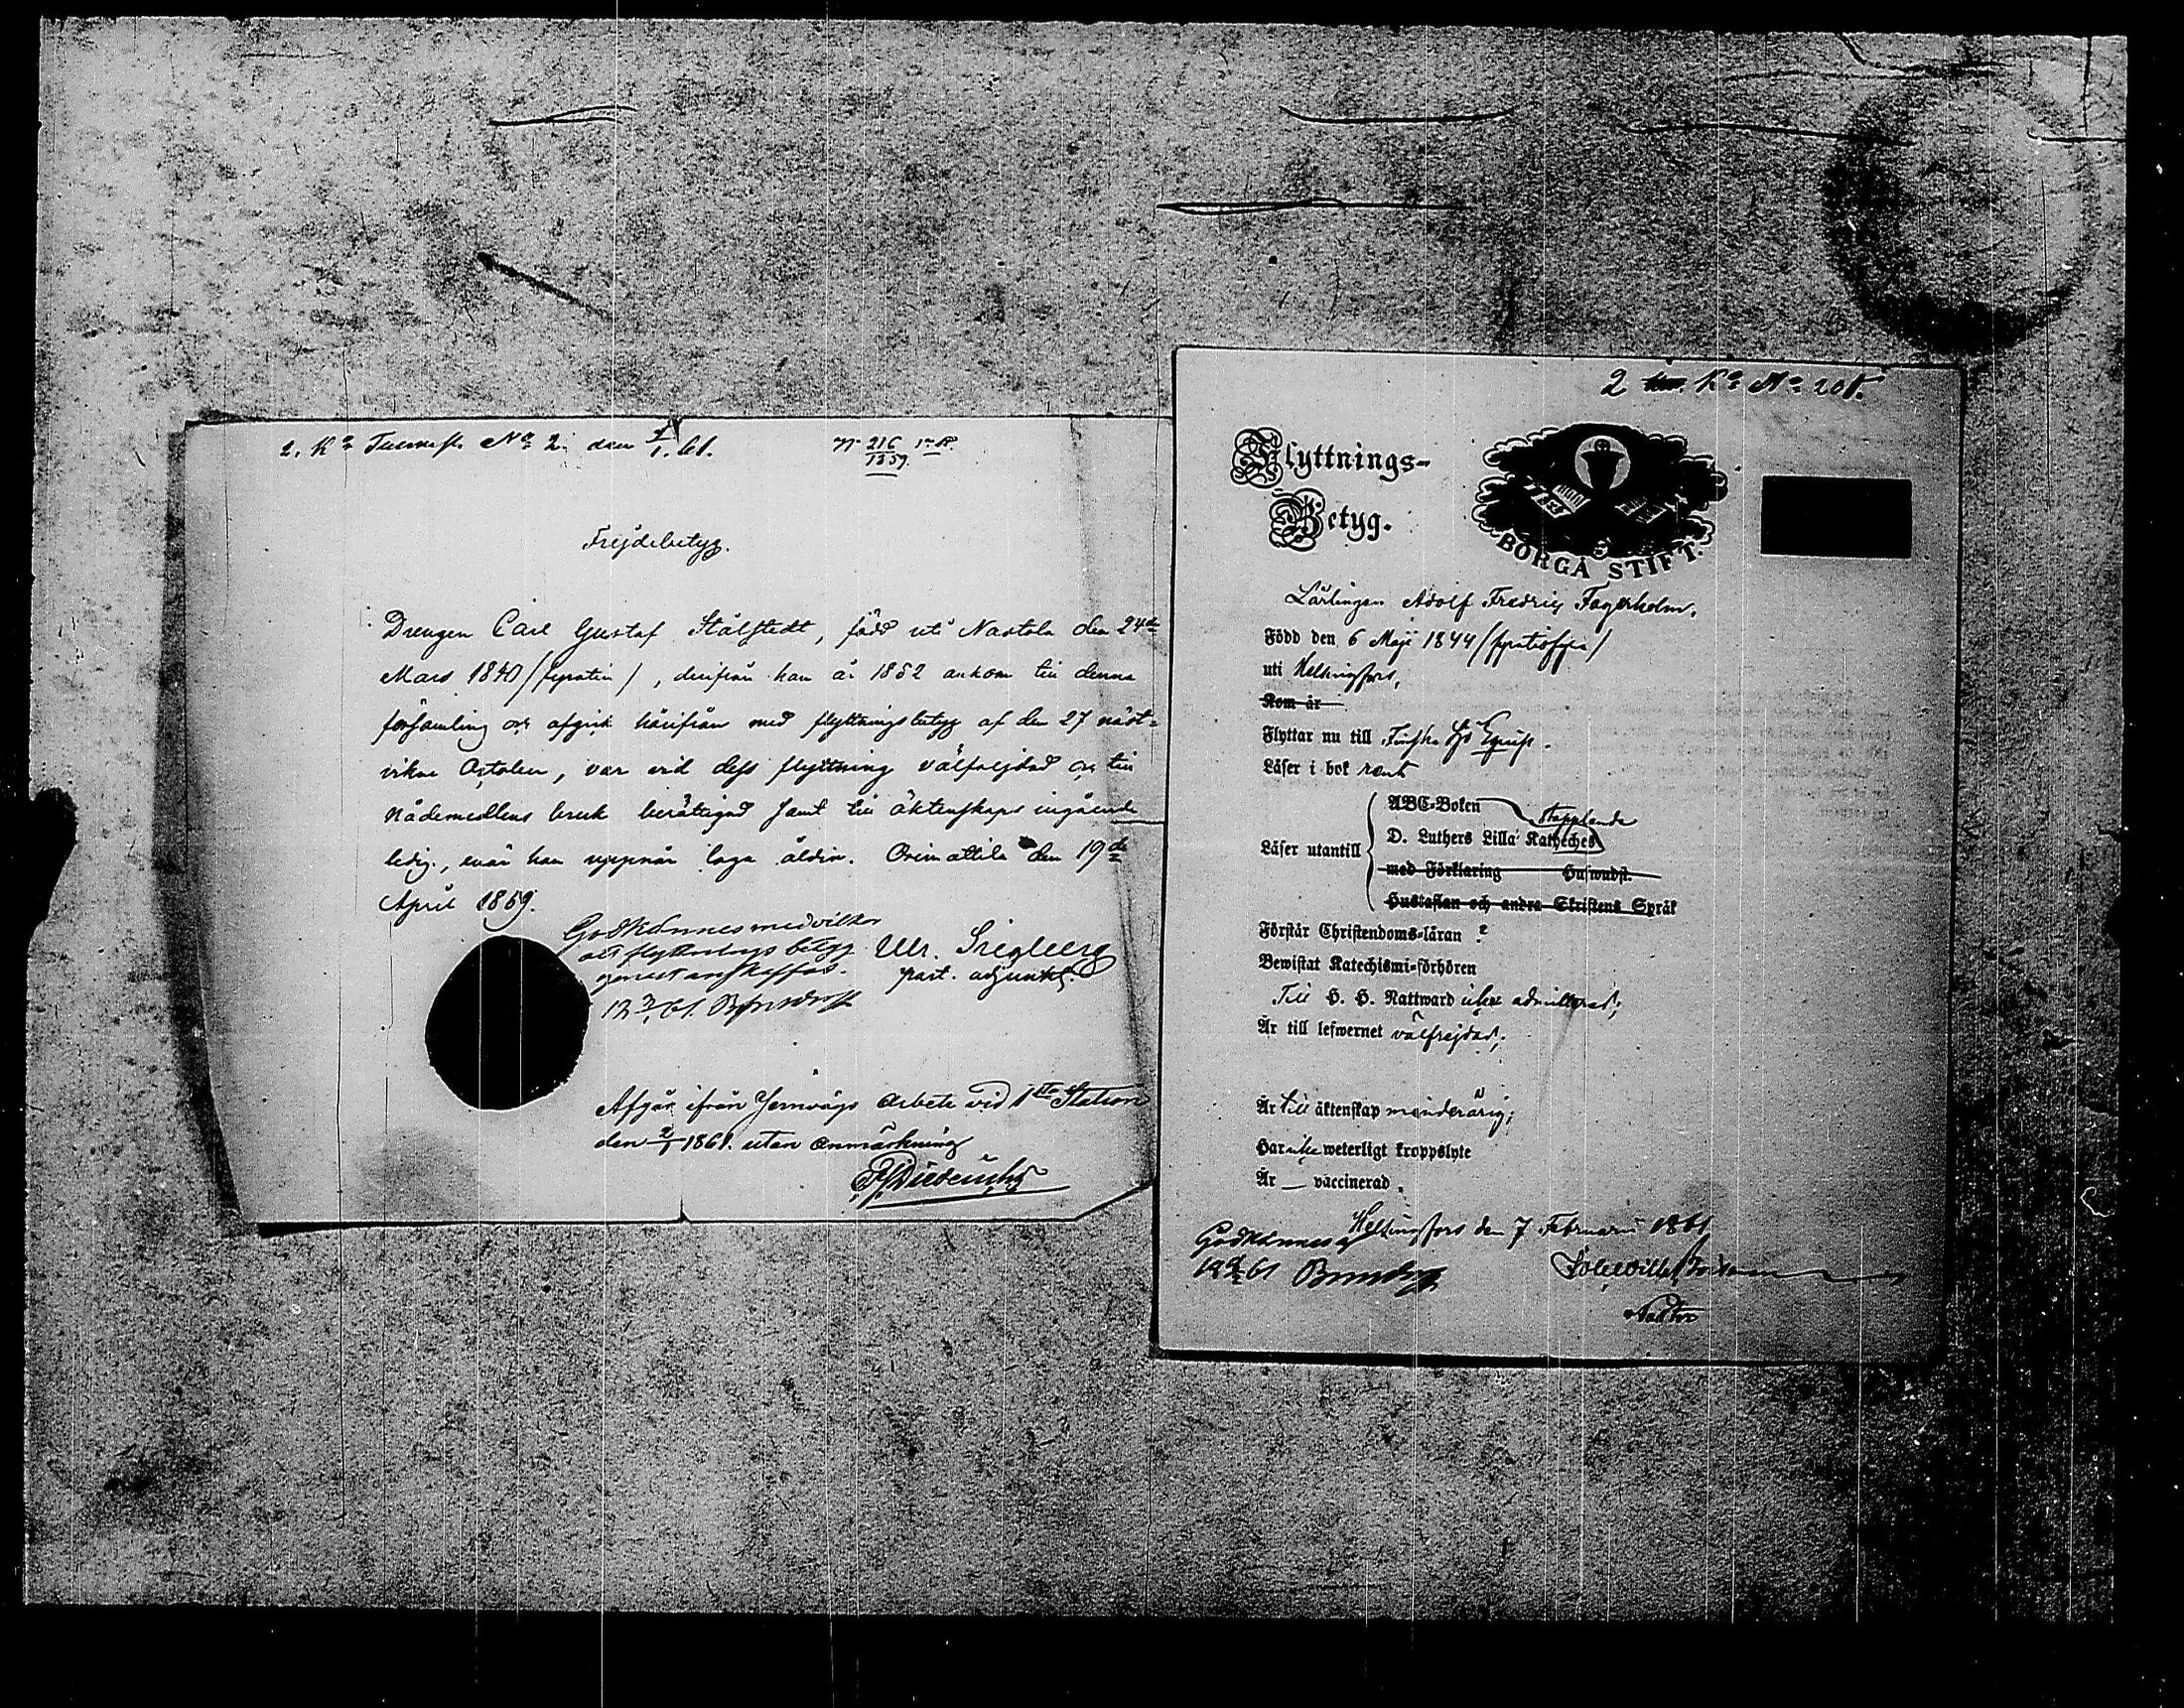 2. K. No 2. den 61.
No 216 1859.
Frejdebetyg.
Drengen Carl Gustaf Stålstedt, född uti Nastola den 24de
Mars 1840 /fyratio/, derifrån han år 1852 ankom till denna
församling och afgick härifrån med flyttningsbetyg af den 27 näst-
vikne October, var vid dess flyttning välfrejdad och till
nådemedlens bruk berättigad samt till äktenskaps ingående
ledig, enär han uppnår laga åldern. Orimattila den 19de
April 1859.
Godkännes med vilkor
att flyttnings betyg
genast anskaffas.
61.
past. adjunkt.
Afgår ifrån Jernvägs arbete vid 1sta Station
den 1861. utan anmärkning
2 K. No 208.
Flyttnings-
Betyg.
BORGÅ STIFT.
Lärlingen Adolf Fredric Fagerholm,
Född den 6 Maji 1844 /fyratiofyra/
uti Helsingfors,
Kom år
Flyttar nu till Finska
Läser i bok rent
ABC-Boken stapplande
Läser utantill D. Luthers Lilla Katheches
med Förklaring Huswudst.
Hustaflan och andra Skriftens Språk
Förstår Christendoms-läran ?
Bewistat Katechismi-förhören
Till H. H. Nattward icke admitterad;
Är till lefwernet välfrejdad;
Är till äktenskap minderårig;
Har icke weterligt kroppslyte
Är — vaccinerad.
Helsingfors den 7 Februarii 1861
Godkännes
61
Pastor